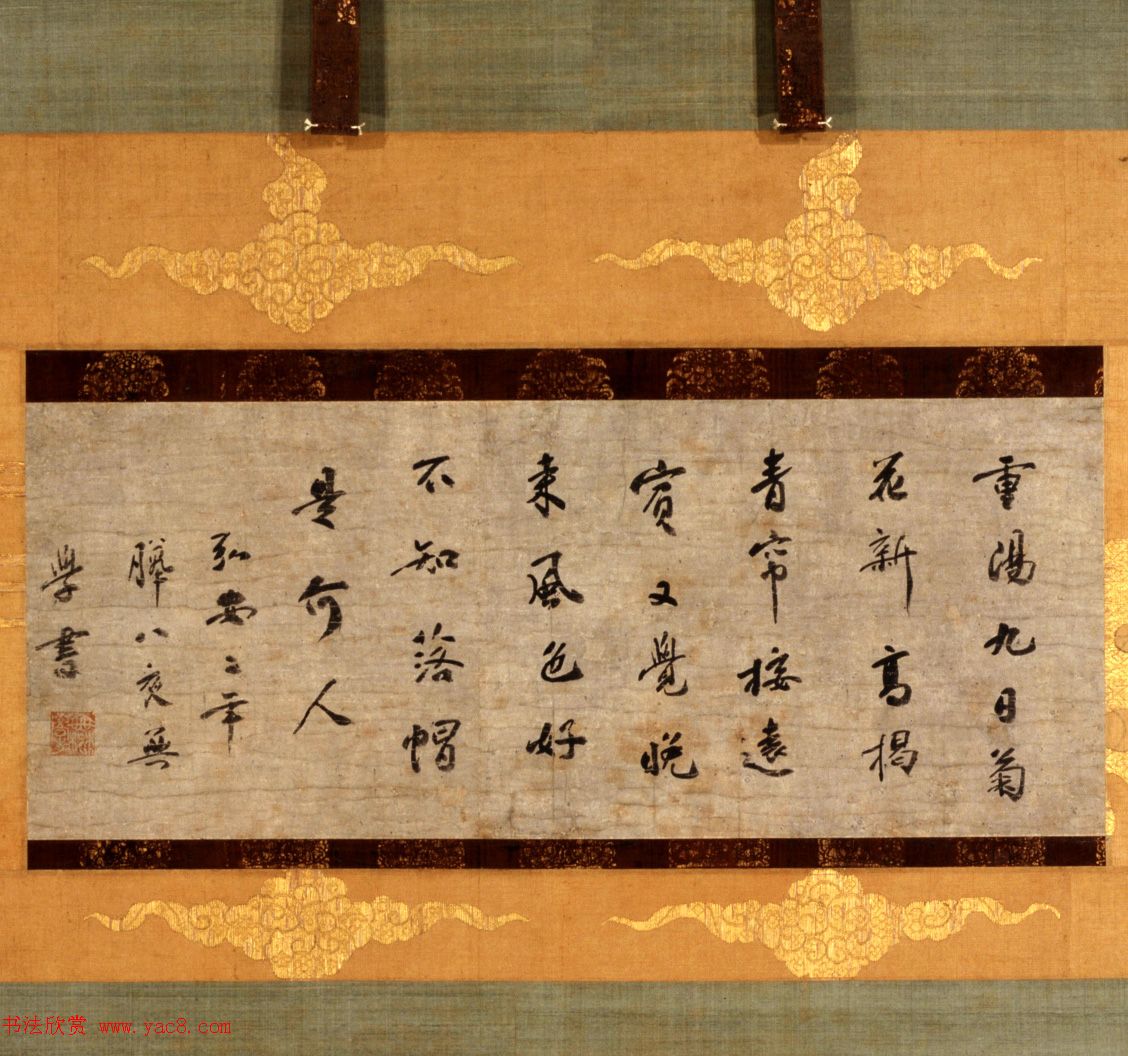 重陽九日菊
花新高揭
青帘接遠
賓又覺晚
來風色好
不知落帽
是何人
弘安二年
臘八夜無
學書
书法欣赏 www.yac8.com